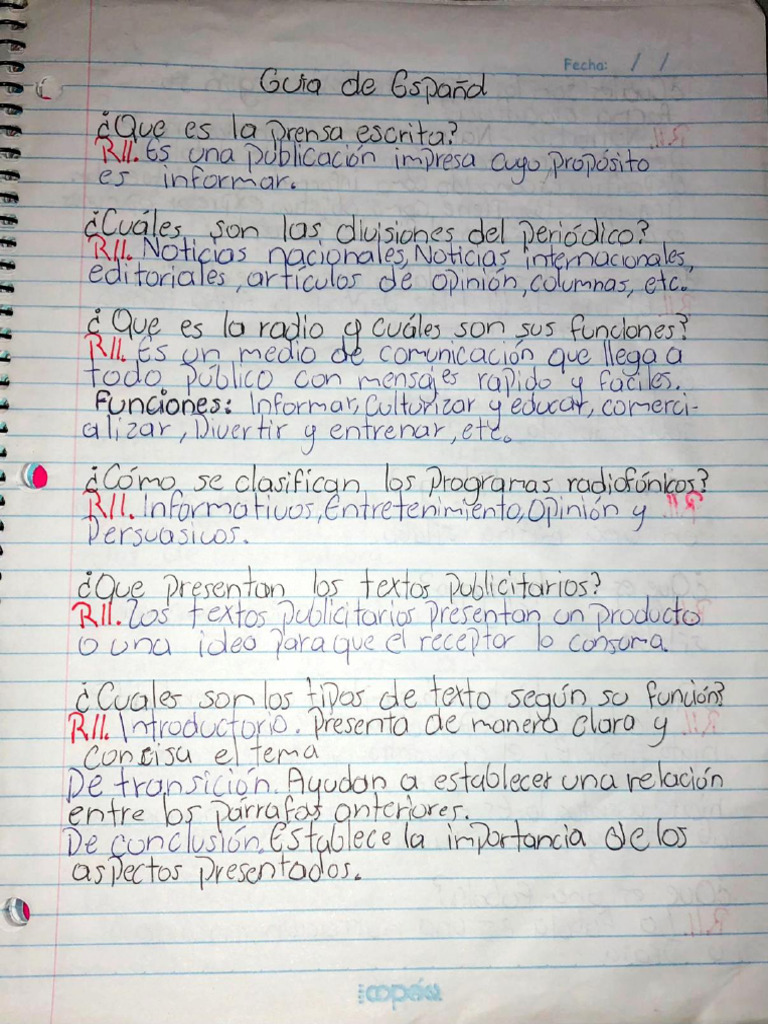 Fecha: / /
Guia de Español
¿Que es la prensa escrita?
R//. Es una publicación impresa cuyo propósito
es informar.
¿Cuáles son las divisiones del periódico?
R//. Noticias nacionales, Noticias internacionales,
editoriales, artículos de opinión, columnas, etc.
¿Que es la radio y cuáles son sus funciones?
R//. Es un medio de comunicación que llega a
todo público con mensajes rapido y faciles.
Funciones: Informar, Culturizar y educar, comerci-
alizar, Divertir y entrenar, etc.
¿Cómo se clasifican los Programas radiofónicos?
R//. Informativos, Entretenimiento, Opinión y
Persuasicos.
¿Que presentan los textos publicitarios?
R//. Los textos publicitarios presentan un producto
o una idea para que el receptor lo consuma.
¿Cuales son los tipos de texto según su función?
R//. Introductorio. Presenta de manera clara y
concisa el tema
De transición. Ayudan a establecer una relación
entre los párrafos anteriores.
De conclusión. Establece la importancia de los
aspectos presentados.